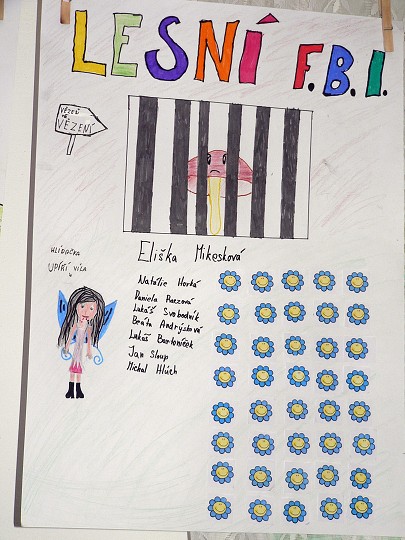 LESNÍ F.B.I.
VĚZEŇ
VE
VĚZENÍ
Eliška Mikesková
HLÍDAČKA
UPÍŘÍ VÍLA
Natálie Horká
Daniela Parzová
Lukáš Svobodník
Beáta Andrýsková
Lukáš Bartoníček
Jan Sloup
Michal Hlúch